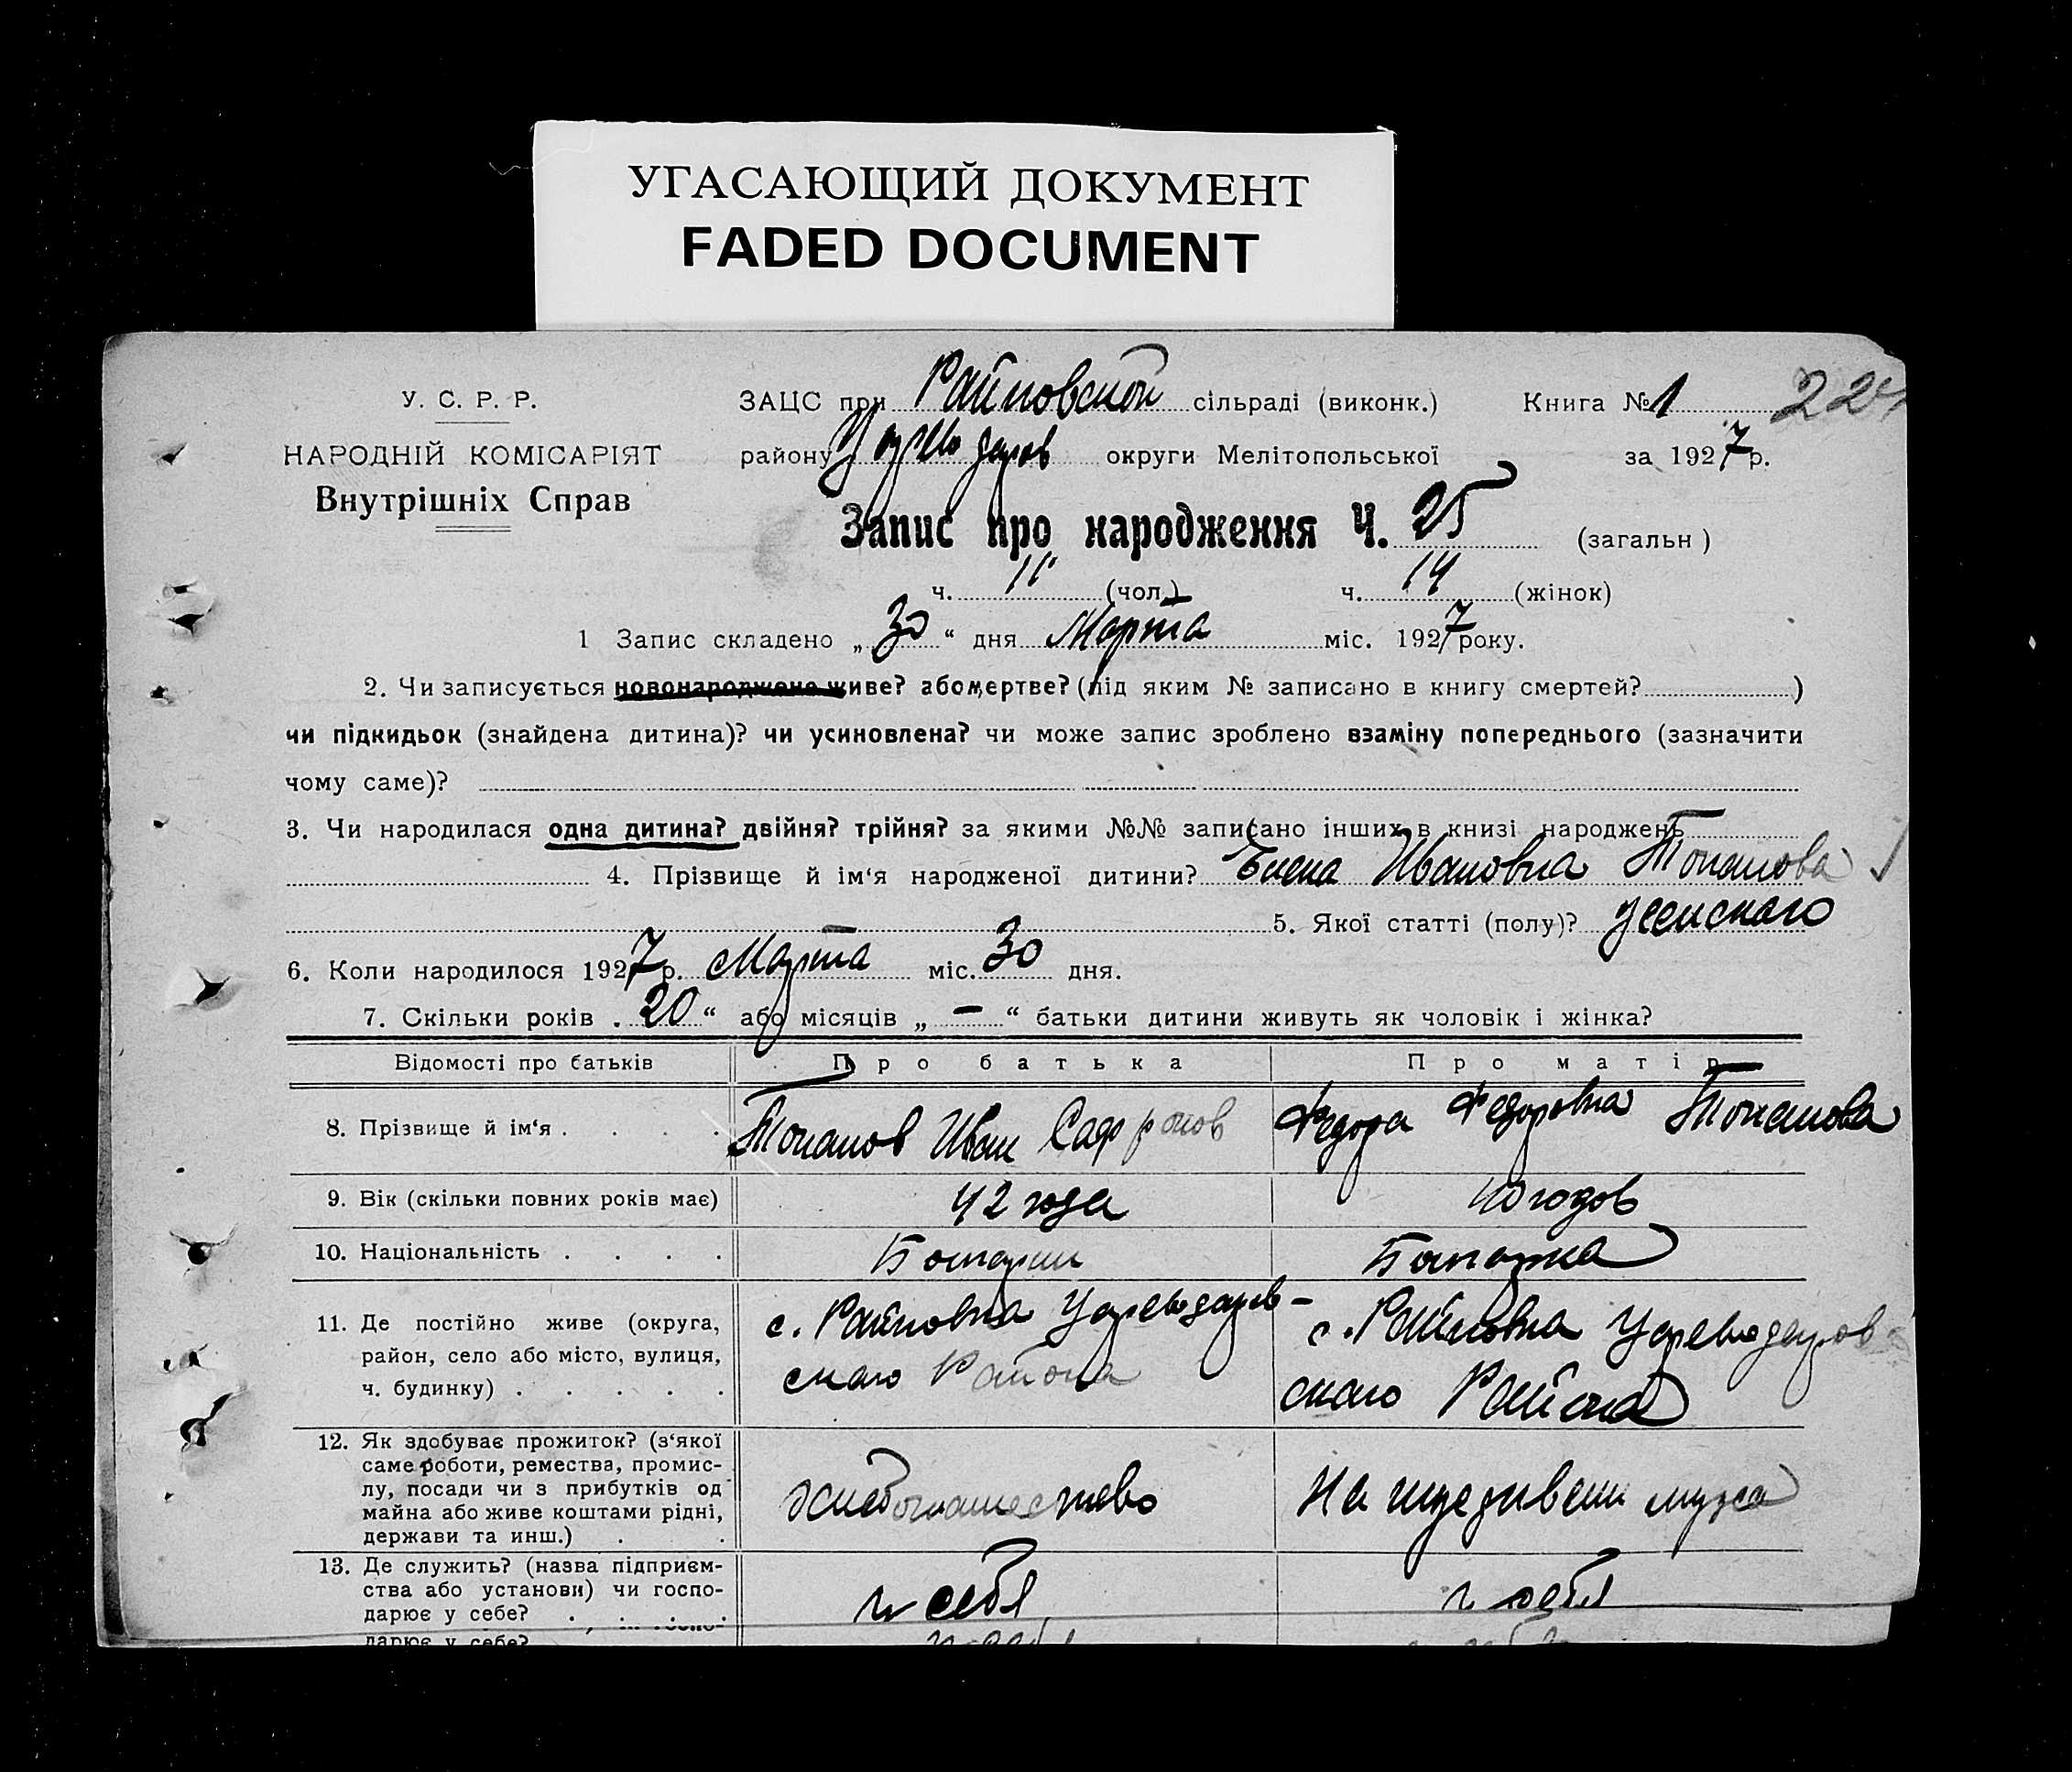 УГАСАЮЩИЙ ДОКУМЕНТ
FADED DOCUMENT
У. С. Р. Р.
НАРОДНІЙ КОМІСАРІЯТ
Внутрішніх Справ
ЗАЦС при Райновской сільраді (виконк.) Книга № 1 224
району округи Мелітопольської за 1927 р.
Запис про народження Ч. 25 (загальн)
ч. 11 (чол.) ч. 14 (жінок)
1 Запис складено „30“ дня Марта міс. 1927 року.
2. Чи записується новонароджене живе? або мертве? (під яким № записано в книгу смертей? )
чи підкидьок (знайдена дитина)? чи усиновлена? чи може запис зроблено взаміну попереднього (зазначити
чому саме)?
3. Чи народилася одна дитина? двійня? трійня? за якими №№ записано інших в книзі народжень
4. Прізвище й ім‘я народженої дитини? Елена Ивановна Топалова
5. Якої статті (полу)? женскаго
6. Коли народилося 1927 р. Марта міс. 30 дня.
7. Скільки років „20“ або місяців „–“ батьки дитини живуть як чоловік і жінка?
Відомості про батьків Про батька Про матір
8. Прізвище й ім‘я . . . . Топалов Иван Федора Федоровна Топалова
9. Вік (скільки повних років має) 42 года 40 годов
10. Національність . . . . Болгарин Болгарка
11. Де постійно живе (округа,
район, село або місто, вулиця,
ч. будинку) . . . . .
с. Райновка Цареводаров-
скаго Района
с. Райновка Цареводаров
скаго Района
12. Як здобуває прожиток? (з‘якої
саме роботи, ремества, промис-
лу, посади чи з прибутків од
майна або живе коштами рідні,
держави та инш.) . .
хлебопашество
На иждивени мужа
13. Де служить? (назва підприєм-
ства або установи) чи госпо-
дарює у себе? . . . .
у себя
у себя
дарює у себе?